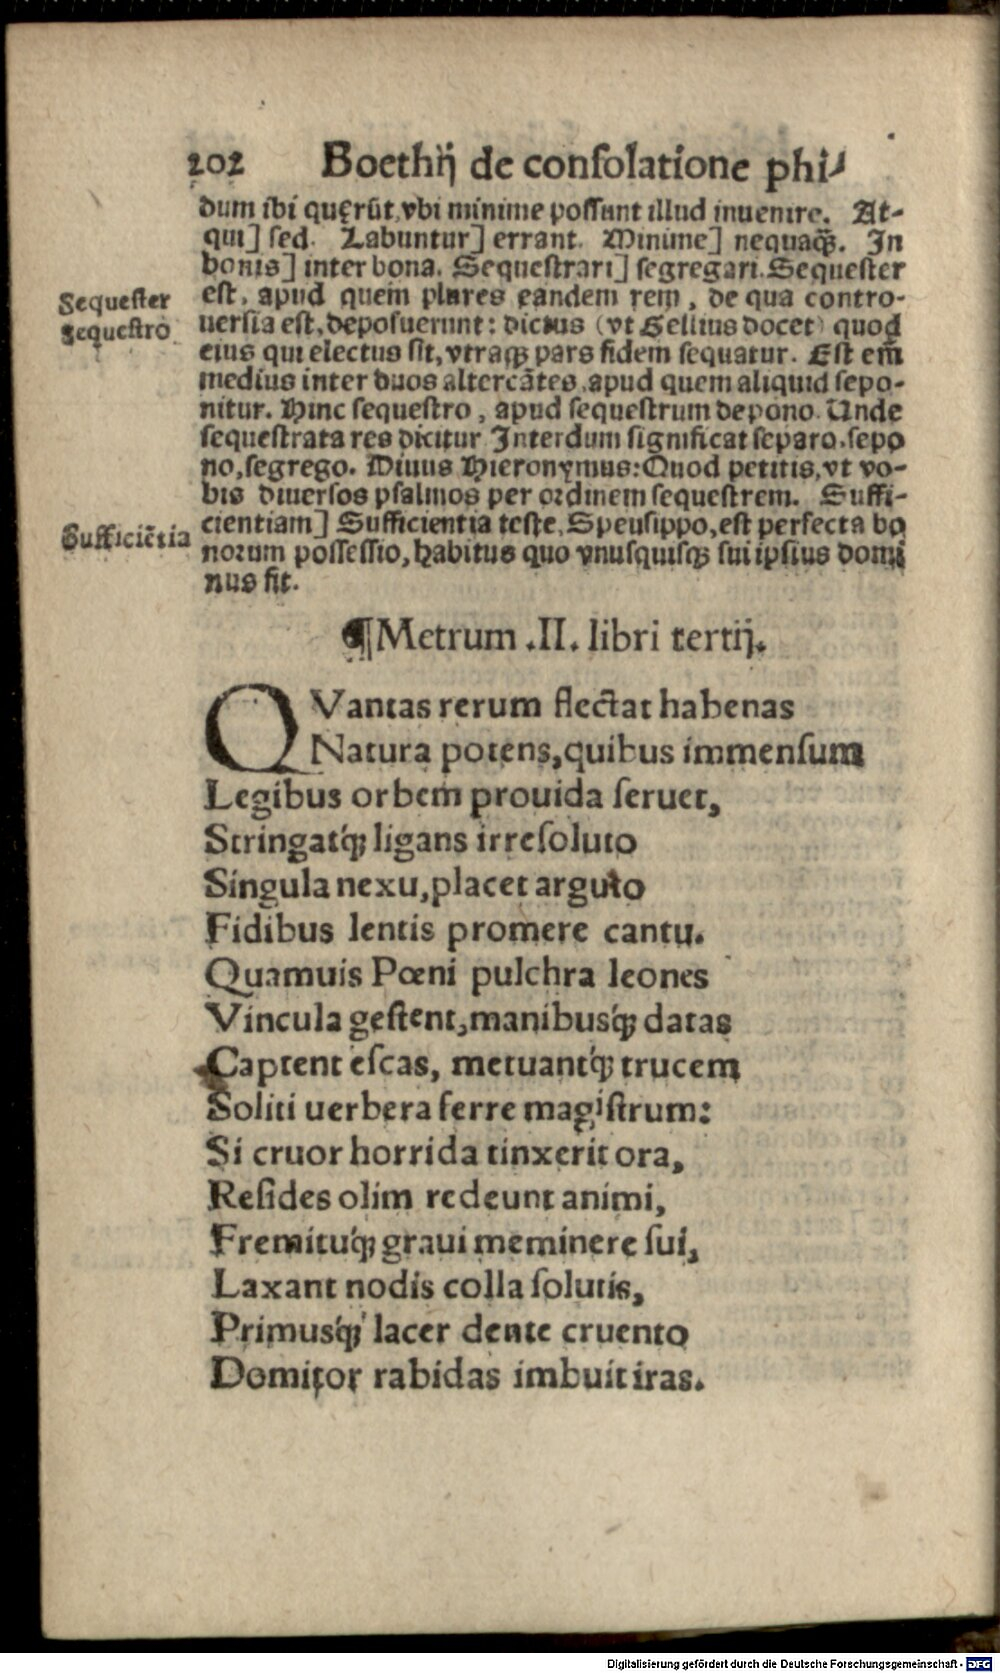 202 Boethij de conſolatione phi-
dum ibi quęrūt, vbi minime poſſunt illud inuenire. At-
qui] ſed. Labuntur] errant. Minime] nequaꝗ̃. In
bonis] inter bona. Sequeſtrari] ſegregari. Sequeſter
Sequeſter
est, apud quem plures eandem rem, de qua contro-
Sequeſtro
uerſia eſt, depoſuerunt: dictus (vt Gellius docet) quod
eius qui electus ſit, vtraqꝫ pars fidem ſequatur. Eſt em̄
medius inter duos altercātes, apud quem aliquid ſepo-
nitur. Hinc ſequeſtro, apud ſequeſtrum depono. Unde
ſequeſtrata res dicitur Interdum ſignificat ſeparo, ſepo
no, ſegrego. Diuus Hieronymus: Quod petitis, vt vo-
bis diuerſos pſalmos per ordinem ſequeſtrem. Suffi-
Sufficiētia
cientiam] Sufficientia teſte, Speuſippo, eſt perfecta bo
norum poſſeſſio, habitus quo vnuſquiſqꝫ ſui ipſius domi
nus fit.
¶ Metrum .II. libri tertij.
QVantas rerum flectat habenas
Natura potens, quibus immenſum
Legibus orbem prouida ſeruet,
Stringatq́ꝫ ligans irreſoluto
Singula nexu, placet arguto
Fidibus lentis promere cantu.
Quamuis Pœni pulchra leones
Vincula geſtent, manibusq́ꝫ datas
Captent eſcas, metuantq́ꝫ trucem
Soliti uerbera ferre magiſtrum:
Si cruor horrida tinxerit ora,
Reſides olim redeunt animi,
Fremituq́ꝫ graui meminere ſui,
Laxant nodis colla ſolutis,
Primusq́ꝫ lacer dente cruento
Domitor rabidas imbuit iras.
Digitalisierung gefördert durch die Deutsche Forschungsgemeinschaft - DFG